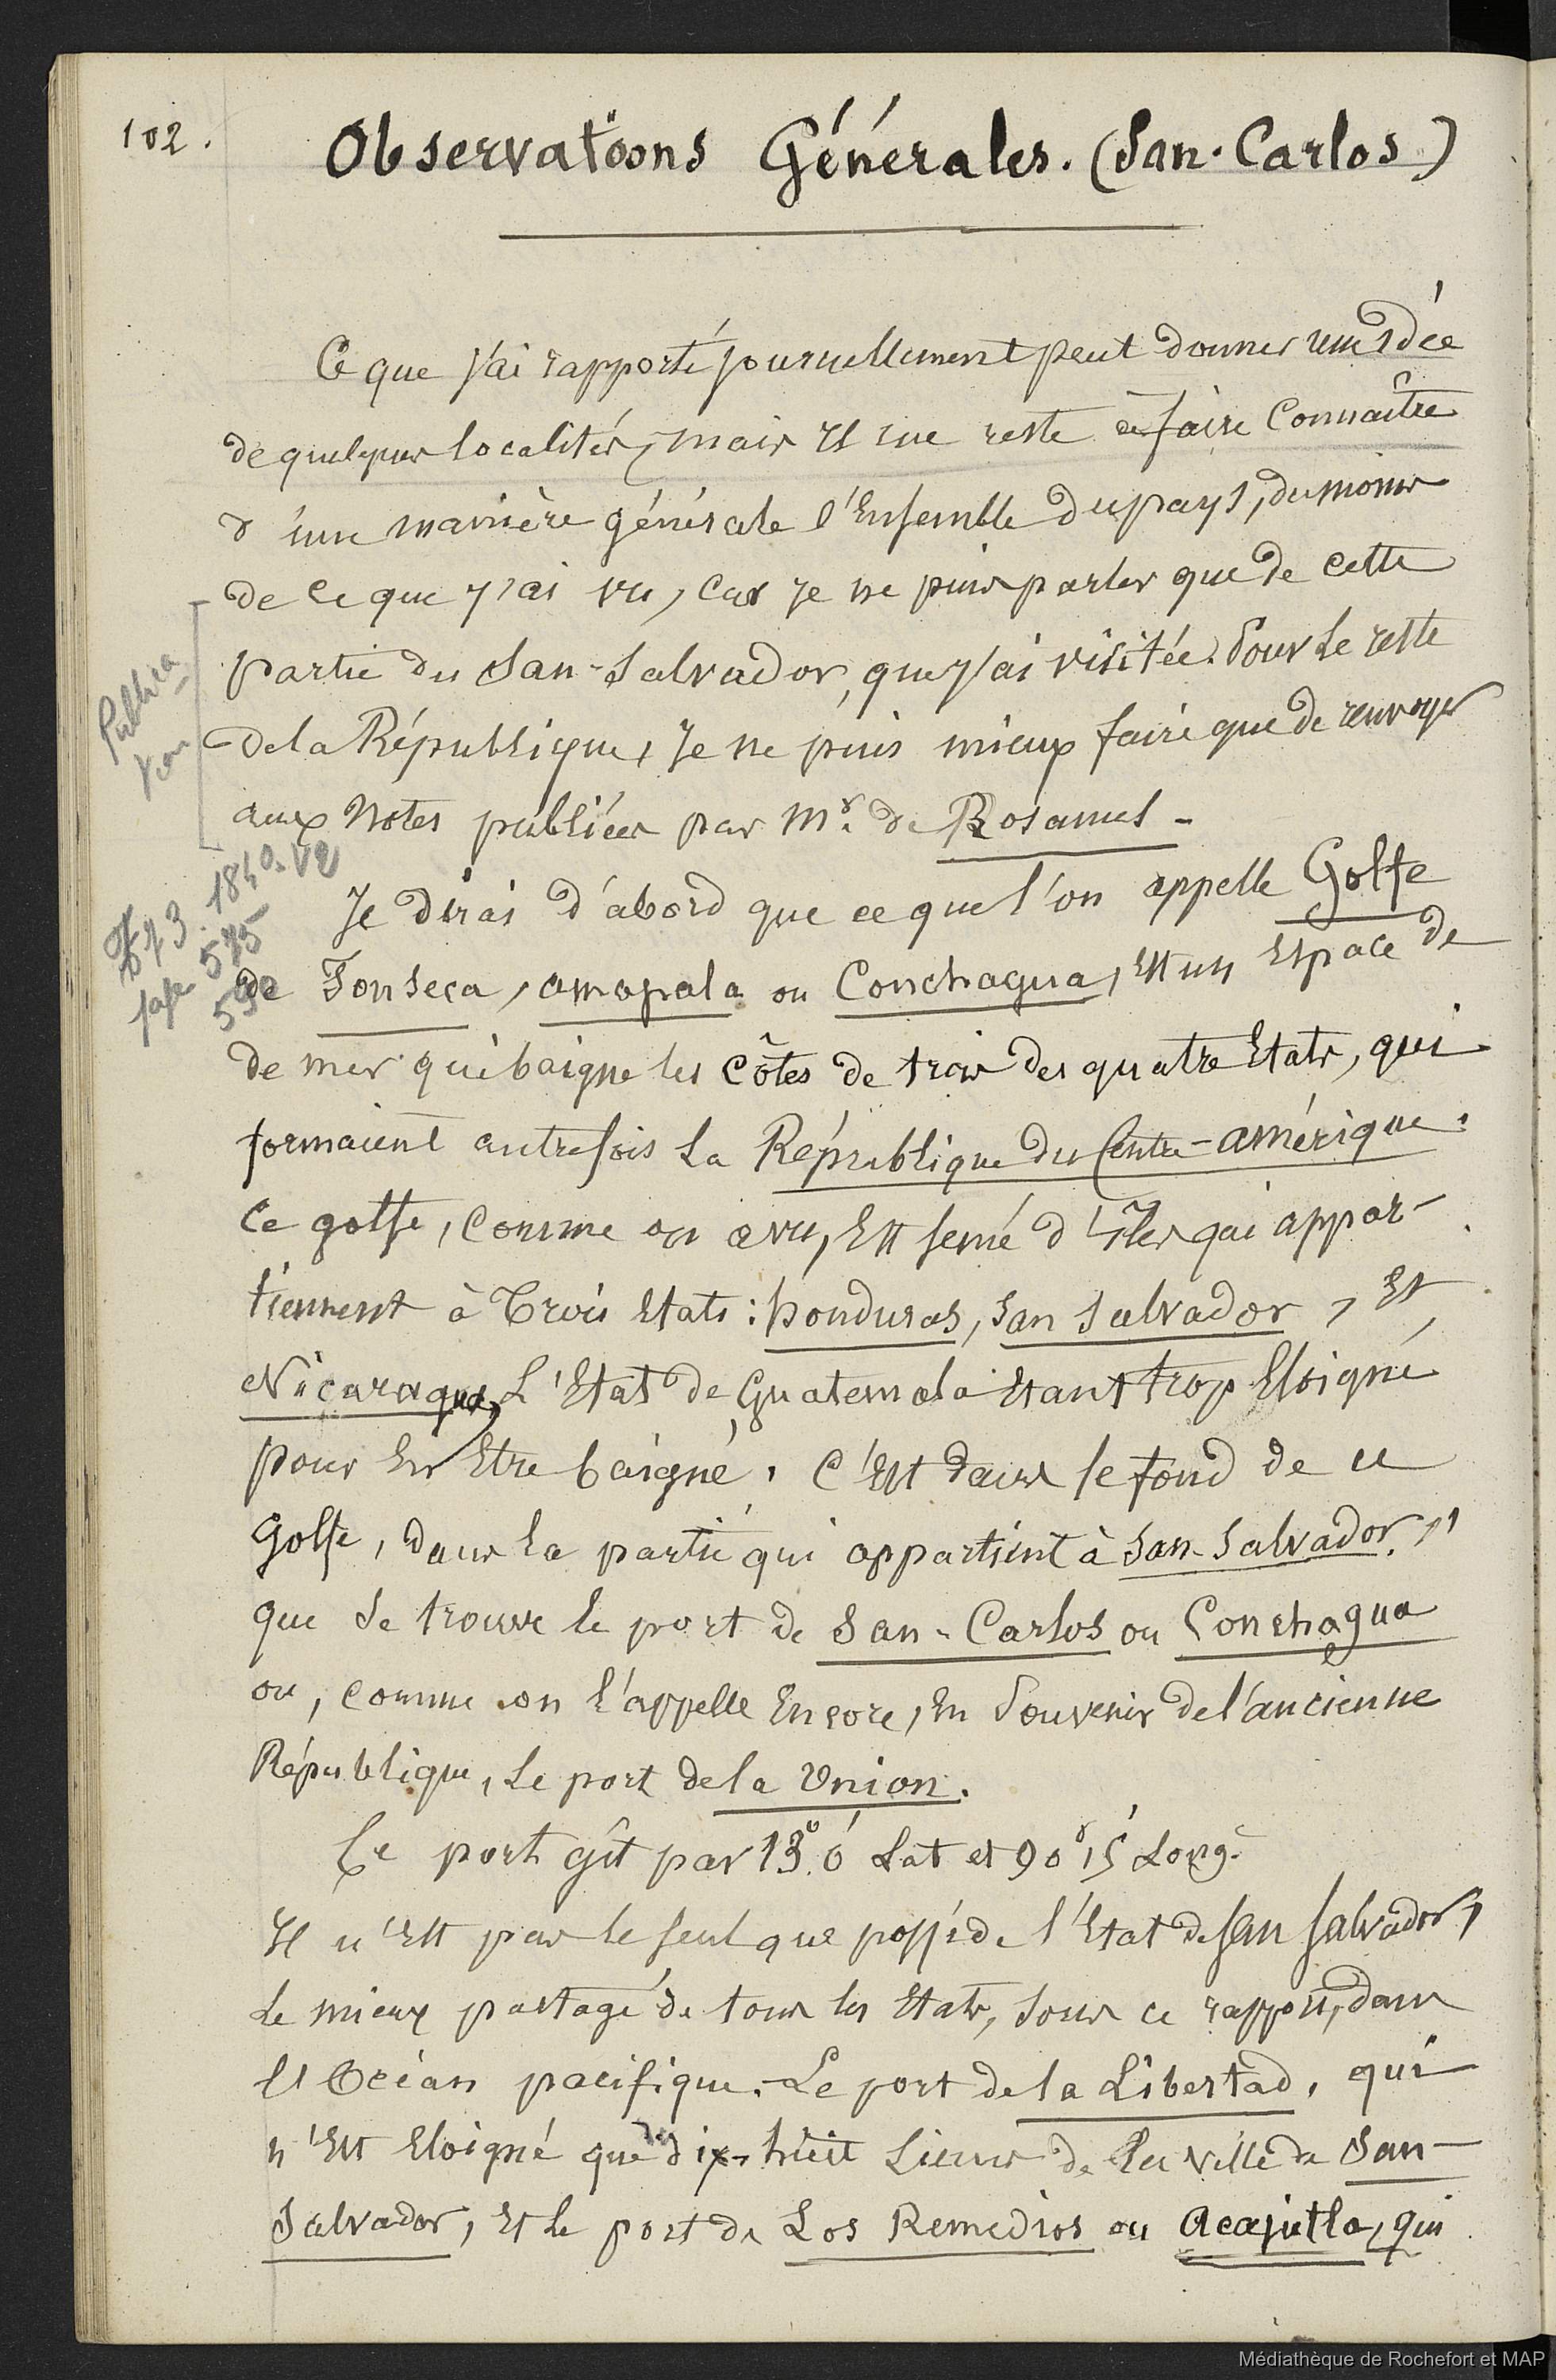 102.
Observations Générales. (San-Carlos)
Ce que j'ai rapporté journellement peut donner une idée
de quelques localités, mais il me reste à faire connaître
d'une manière générale l'Ensemble du pays, du moins
de ce que j'ai vu, car je ne puis parler que de cette
partie du San-Salvador, que j'ai visitée. Pour le reste
de la République, Je ne puis mieux faire que de renvoyer
aux Notes publiées par Mr. de Rosamel -
Publica
tion
1840. V2
T 73
page 575
590
Je dirai d'abord que ce que l'on appelle Golfe
de Fonseca, amapala ou Conchagua, Est un Espace de
de mer qui baigne les Côtes de trois des quatre Etats, qui
formaient autrefois la République du Centre-amérique.
Ce golfe, comme on a vu, Est semé d'îles qui appar-
tiennent à Trois Etats : honduras, San Salvador, Et
Nicaragua, L'Etat de Guatemala Etant trop Eloigné
pour En Etre baigné. C'Est dans le fond de ce
Golfe, dans la partie qui appartient à San-Salvador,
que se trouve le port de San-Carlos ou Conchagua
ou, comme on l'appelle Encore, En Souvenir de l'ancienne
République, Le port de la Union.
Ce port gît par 13° 0' Lat et 90° 15' Long.
Il n'Est pas le seul que possède l'Etat de San Salvador,
Le mieux partagé de tous les Etats, sous ce rapport, dans
l'Océan pacifique. Le port de la Libertad, qui
n'Est Eloigné que dix-huit Lieues de la ville de San-
Salvador, Et le port de Los Remedios ou Acajutla, qui
Médiathèque de Rochefort et MAP